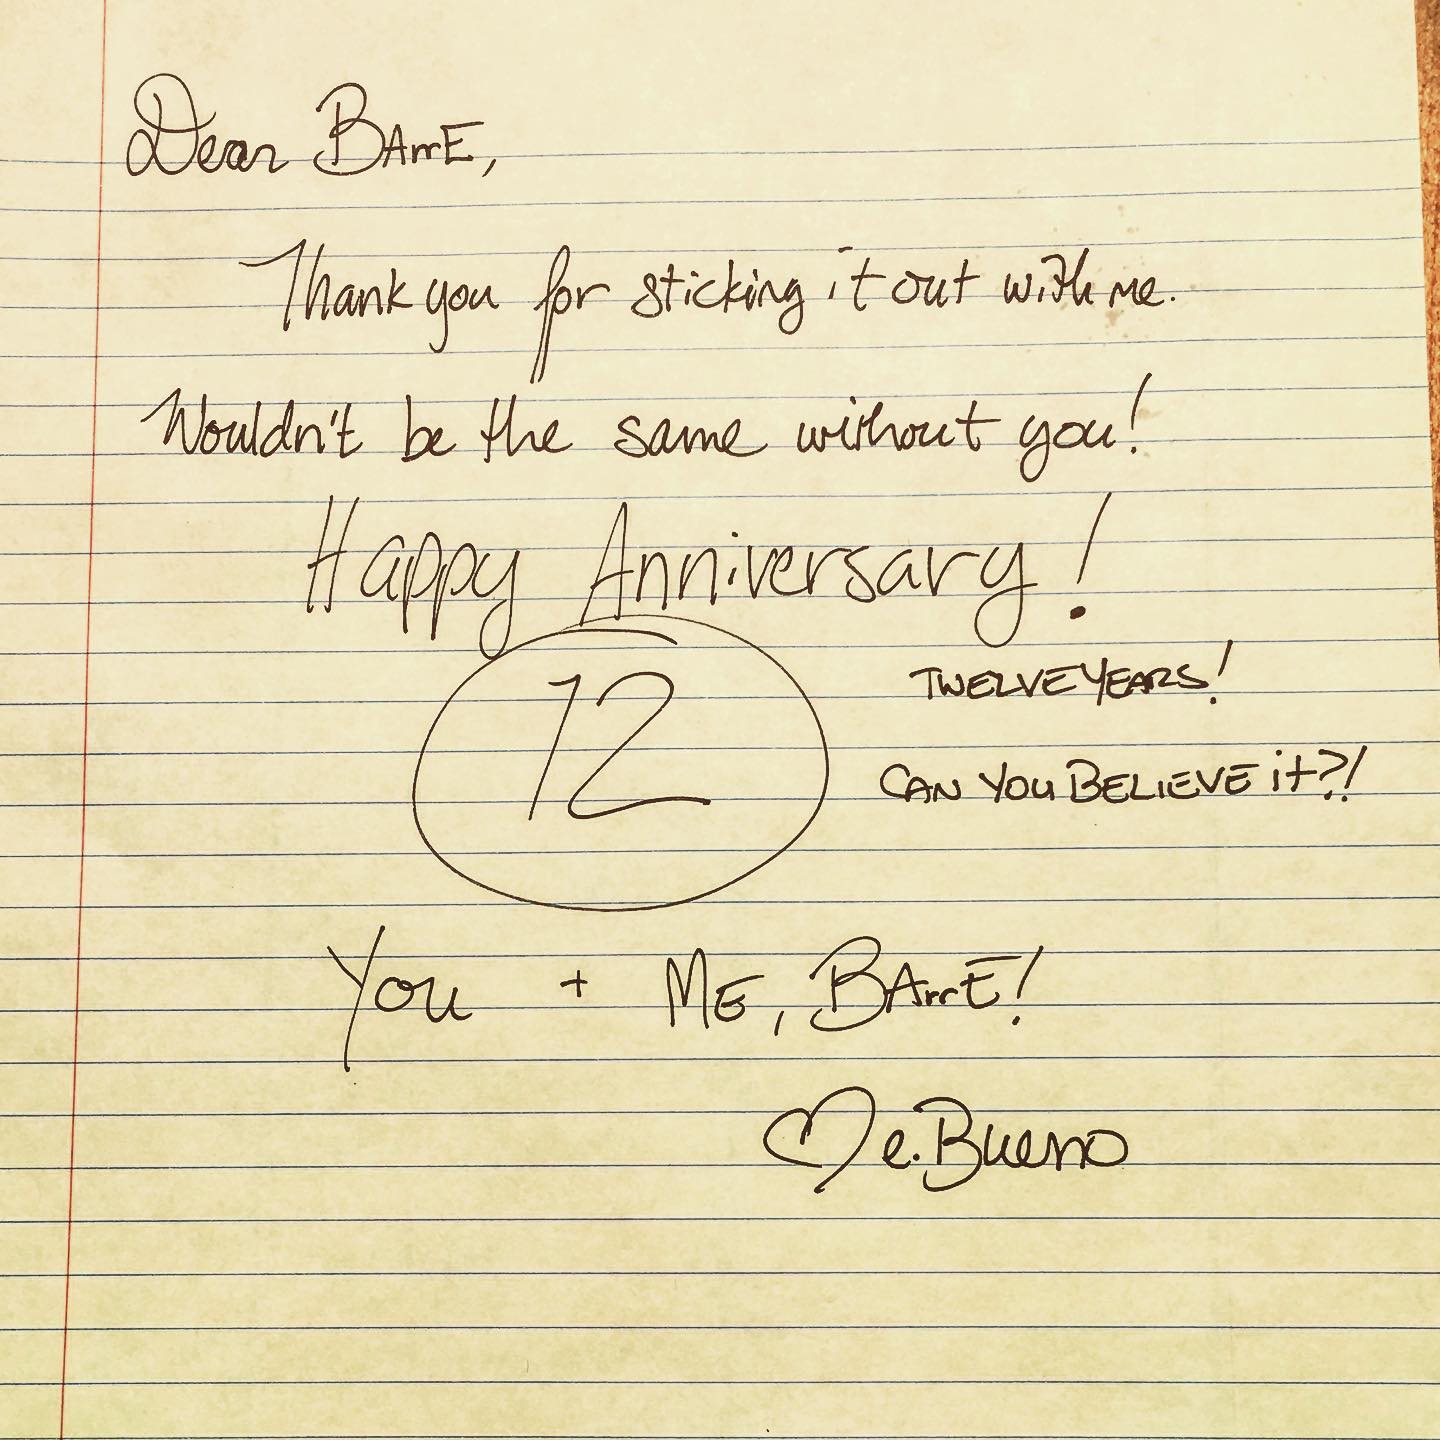 Dear BArrE,
Thank you for sticking it out with me.
Wouldn't be the same without you!
Happy Anniversary!
12
TWELVE YEARS!
CAN YOU BELIEVE it?!
You + ME, BArrE!
♡ e. Bueno